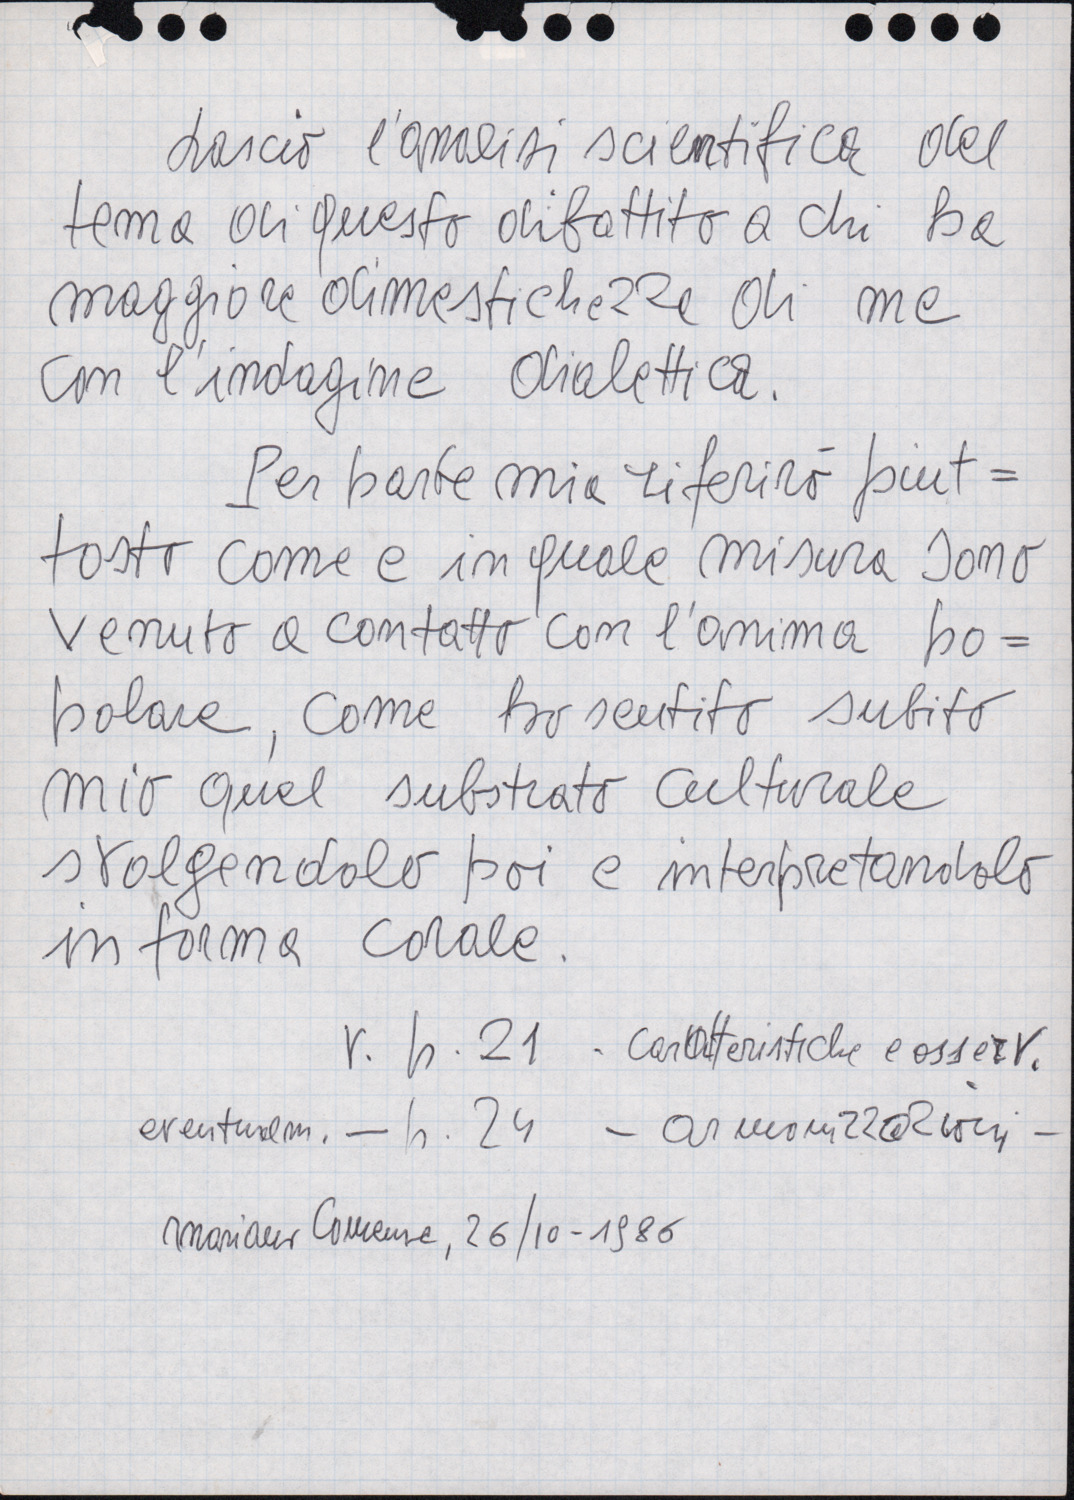 Lascio l'analisi scientifica del
tema di questo dibattito a chi ha
maggiore dimestichezza di me
con l'indagine dialettica.
Per parte mia riferirò piut=
tosto come e in quale misura sono
venuto a contatto con l'anima po=
polare, come ho sentito subito
mio quel substrato culturale
svolgendolo poi e interpretandolo
in forma corale.
v. p. 21 - caratteristiche e osserv.
eventualm. — p. 24 — armonizzazioni —
Mariano Comense, 26/10-1986